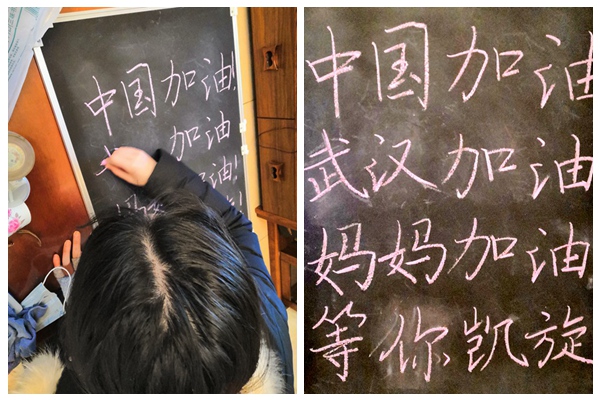 中国加油!
加油
加油!
中国加油
武汉加油
妈妈加油
等你凯旋